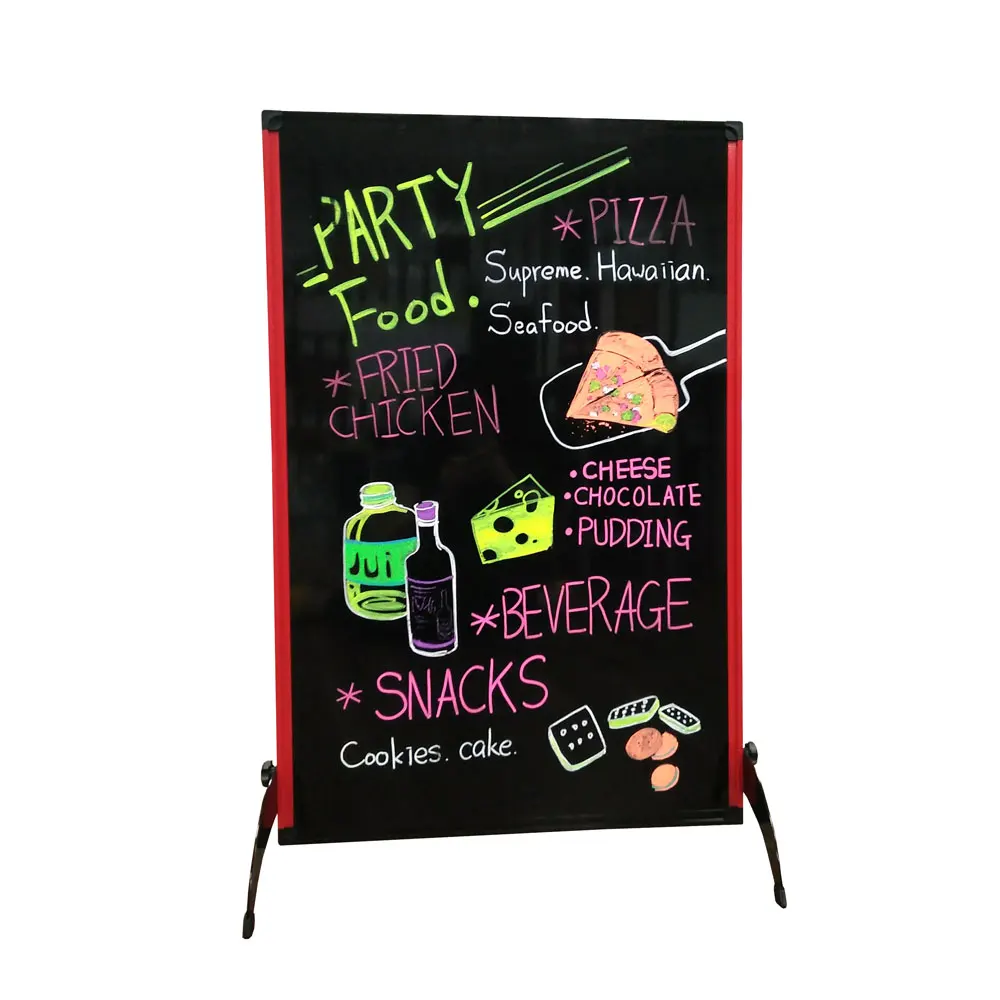 PARTY
Food.
*PIZZA
Supreme. Hawaiian.
Seafood.
*FRIED
CHICKEN
• CHEESE
• CHOCOLATE
• PUDDING
Jui
*BEVERAGE
* SNACKS
Cookies. cake.